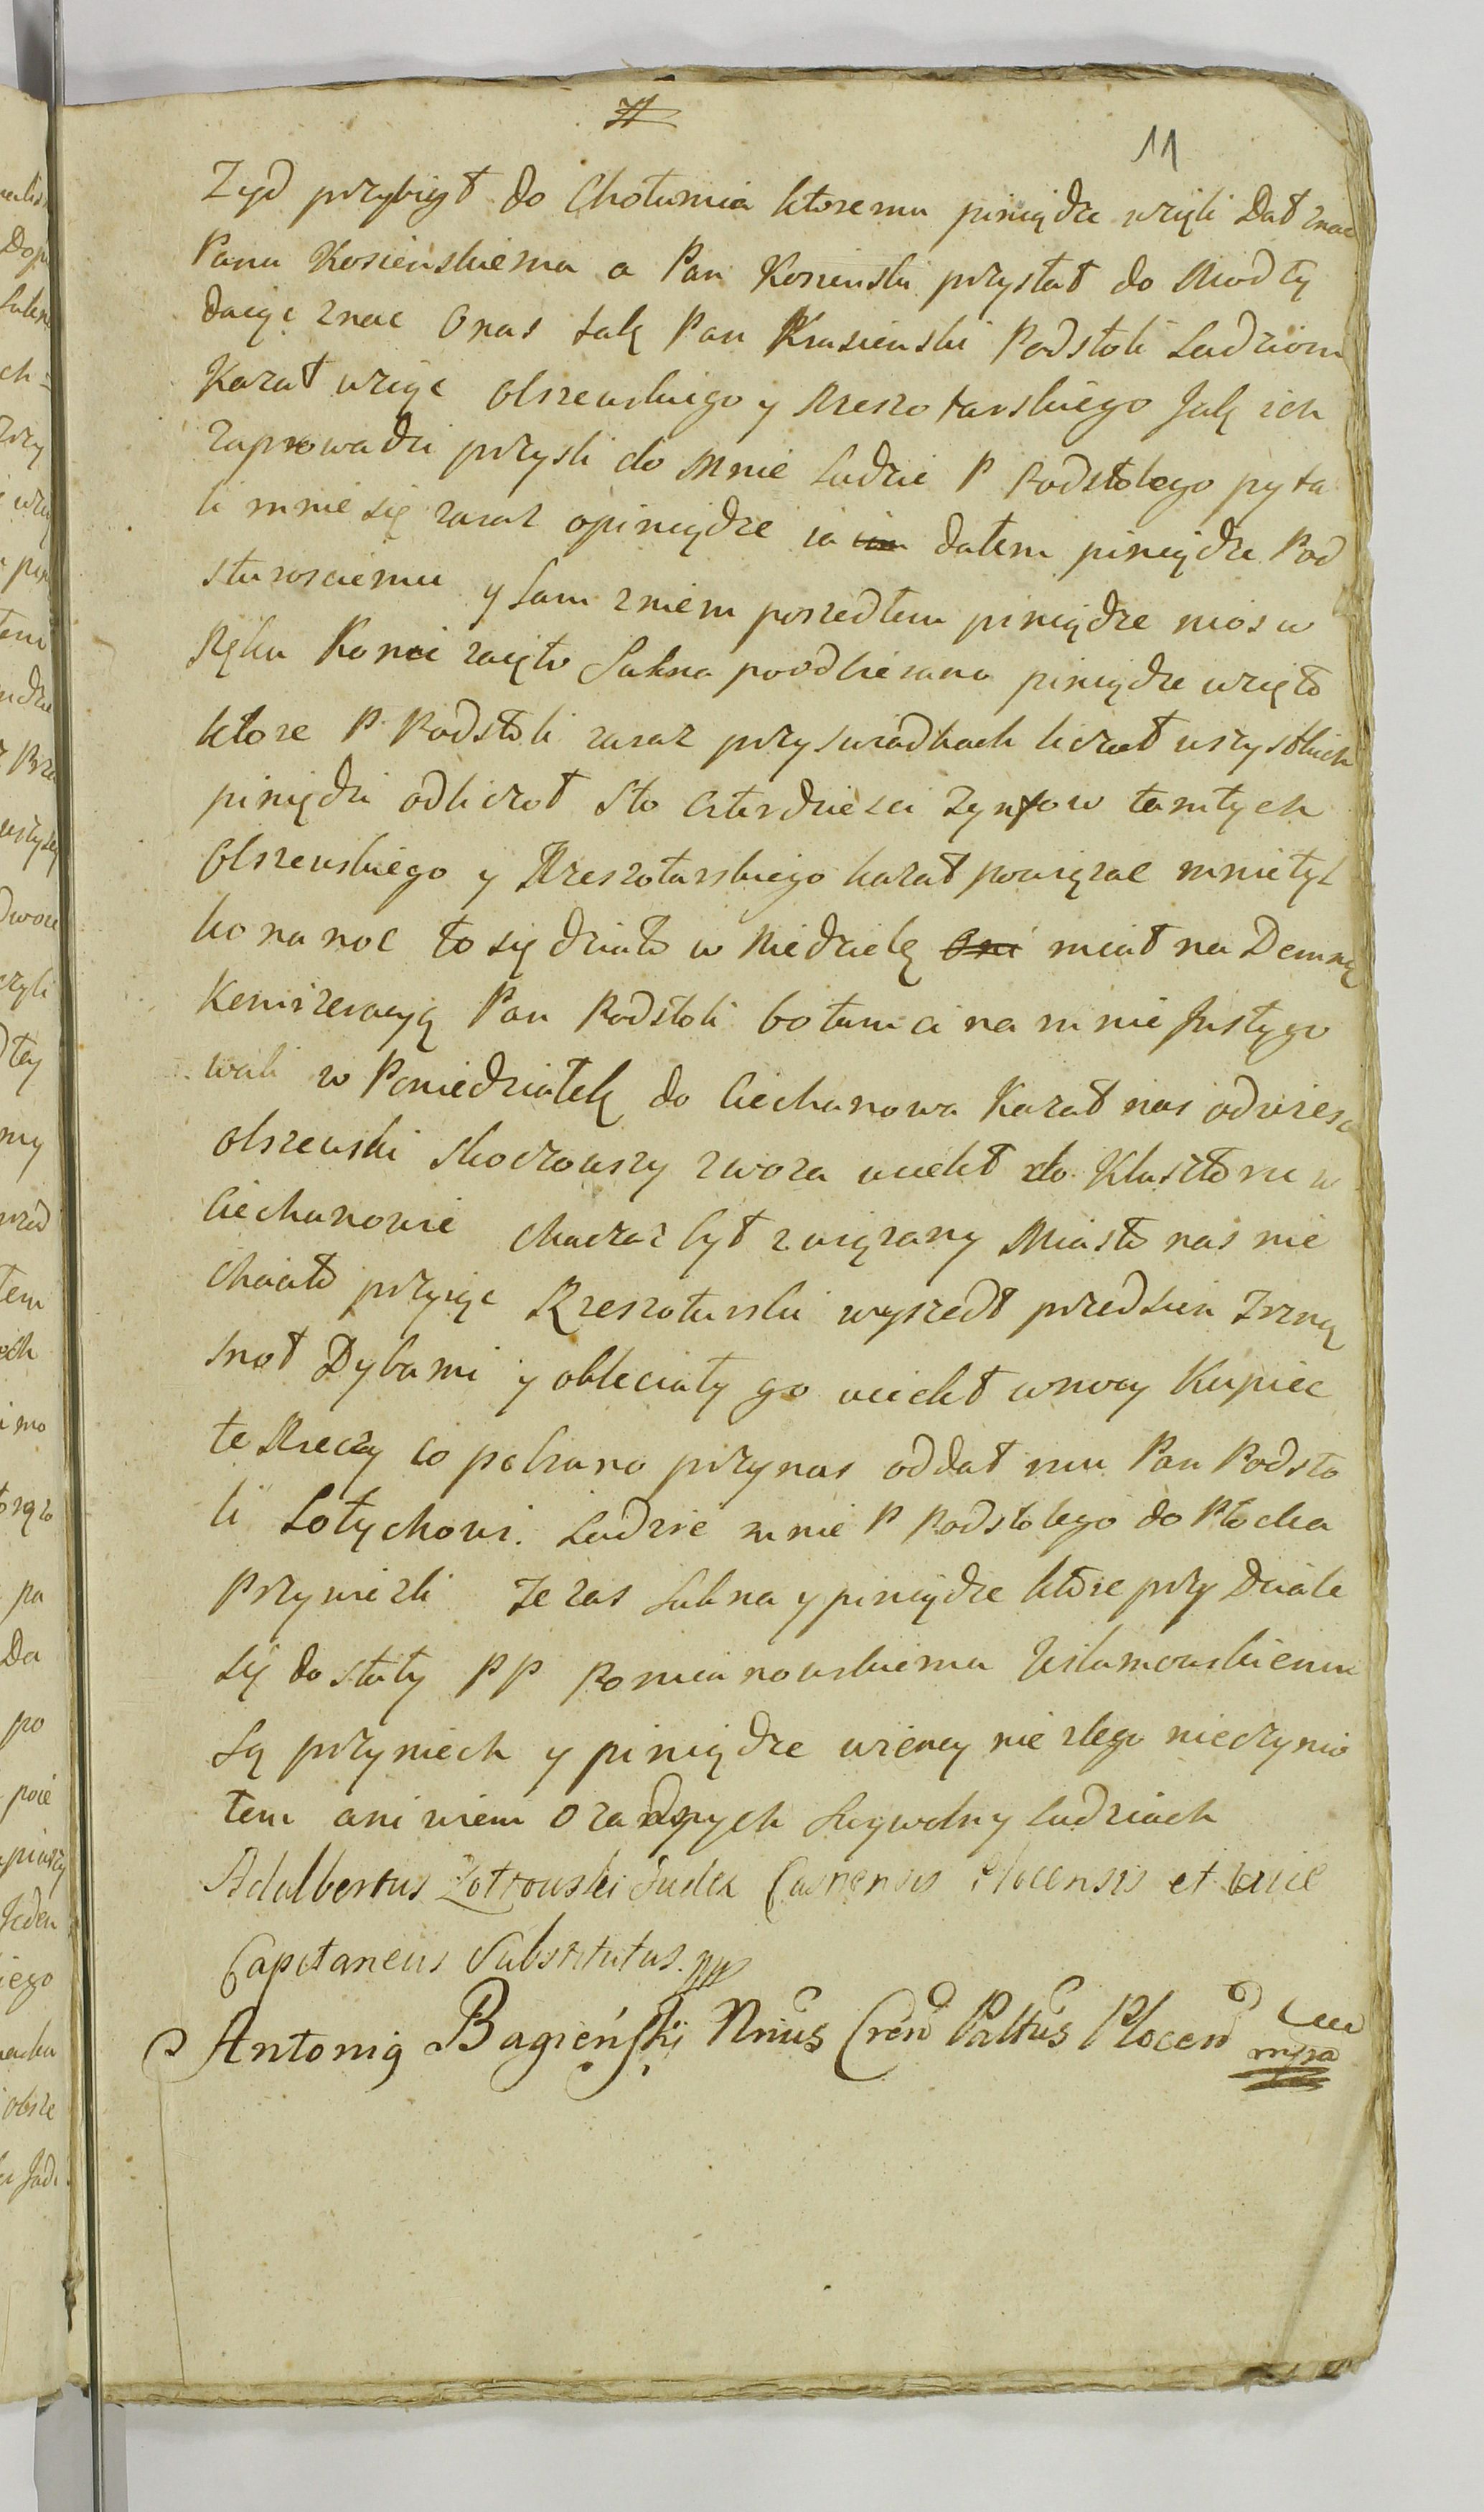 11
Zyd przybigł do Chotumia ktoremu piniądze wzięli Dał znac
Panu Kosienskiemu a Pan Kosienski przysłał do Modły
daiąc znac Onas Jak Pan Krasienski Podstoli Ludziom
Kazał wziąc Olszewskiego y Rzeszotarskiego Jak ich
zaprowadzi przysli do Mnie Ludzie P Podstolego pyta
li mnie się zaraz opiniądze ia im dałem piniądze Pod
starosciemu y sam zniem poszedłem piniądze nios w
Ręku Konie zaięto Sukna poodbierano piniądze wzięto
ktore P. Podstoli zaraz przy swiadkach liczał wszystkich
piniędzi odliczoł sto czterdziesci Tynfow tamtych
Olszewskiego y Rzeszotarskiego kazał powięzac mnie tyl
ko na noc to się działo w Niedzielę Oni miał na Demną
Kemizeracyą Pan Podstoli bo tamci na mnie Instygo
wali w Poniedziałek do Ciechanowa Kazał nas odwiesc
Olszewski skoczowszy zwoza uciekł do Klasztoru w
Ciechanowie chaczaz był związany Miasto nas nie
chciało przyiąc Rzeszotarski wyszedł przedsien Trzną
snoł Dybami y obleciały go uciekł wnocy Kupiec
te Rzeczy co pobrano przynas oddał mu Pan Podsto
li Lotychowi. Ludzie mnie P Podstolego do Płocka
Przywiezli Je zas Sukna y piniądze ktore przy Dziale
się dostały PP Pomianowskiemu
Są przyniech y piniądze wiency nie zlego nieczynio
łem ani wiem O zadnych Swywolny Ludziach
Adalbertus Zotrowski Judex Castrensis Plocensis et Vice
Capitaneus Substitutus. mp
Antonig Bagieński Nrius Cren Palttus Plocen
mpra